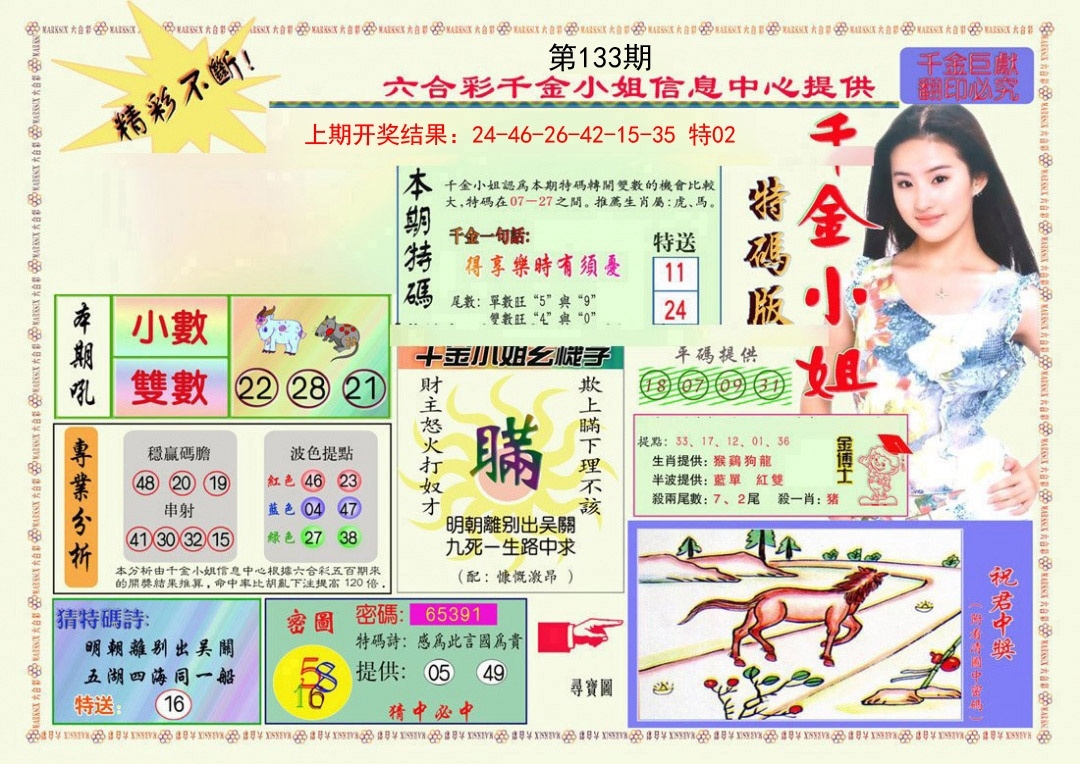 第133期
精彩不斷！
六合彩千金小姐信息中心提供
千金巨獻
翻印必究
上期开奖结果：24-46-26-42-15-35 特02
本期特碼
千金小姐認爲本期特碼轉開雙數的機會比較
大、特碼在07—27之間。推薦生肖屬：虎、馬。
千金一句話：
得享樂時有須憂
尾數：單數旺“5”與“9”
雙數旺“4”與“0”
特送
11
24
特碼版
千金小姐
本期吼
小數
雙數
22 28 21
千金小姐玄機字
財主怒火打奴才
瞞
欺上瞞下理不該
明朝離别出吴關
九死一生路中求
（配：慷慨激昂）
平碼提供
18 07 09 31
提點：33、17、12、01、36
生肖提供：猴鷄狗龍
半波提供：藍單 紅雙
殺兩尾數：7、2尾 殺一肖：豬
金博士
專業分析
穩贏碼膽
48 20 19
串射
41 30 32 15
波色提點
紅色 46 23
藍色 04 47
綠色 27 38
本分析由千金小姐信息中心根據六合彩五百期來
的開獎結果推算，命中率比胡亂下注提高120倍．
猜特碼詩：
明朝離别出吴關
五湖四海同一船
特送： 16
密圖
58
16
密碼： 65391
特碼詩：感爲此言國爲貴
提供： 05 49
猜中必中
尋寶圖
祝君中獎